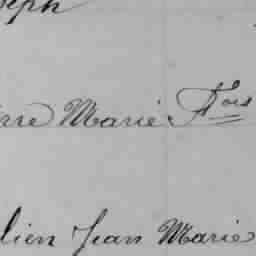 seph
rre Marie Fois
lien Jean Marie